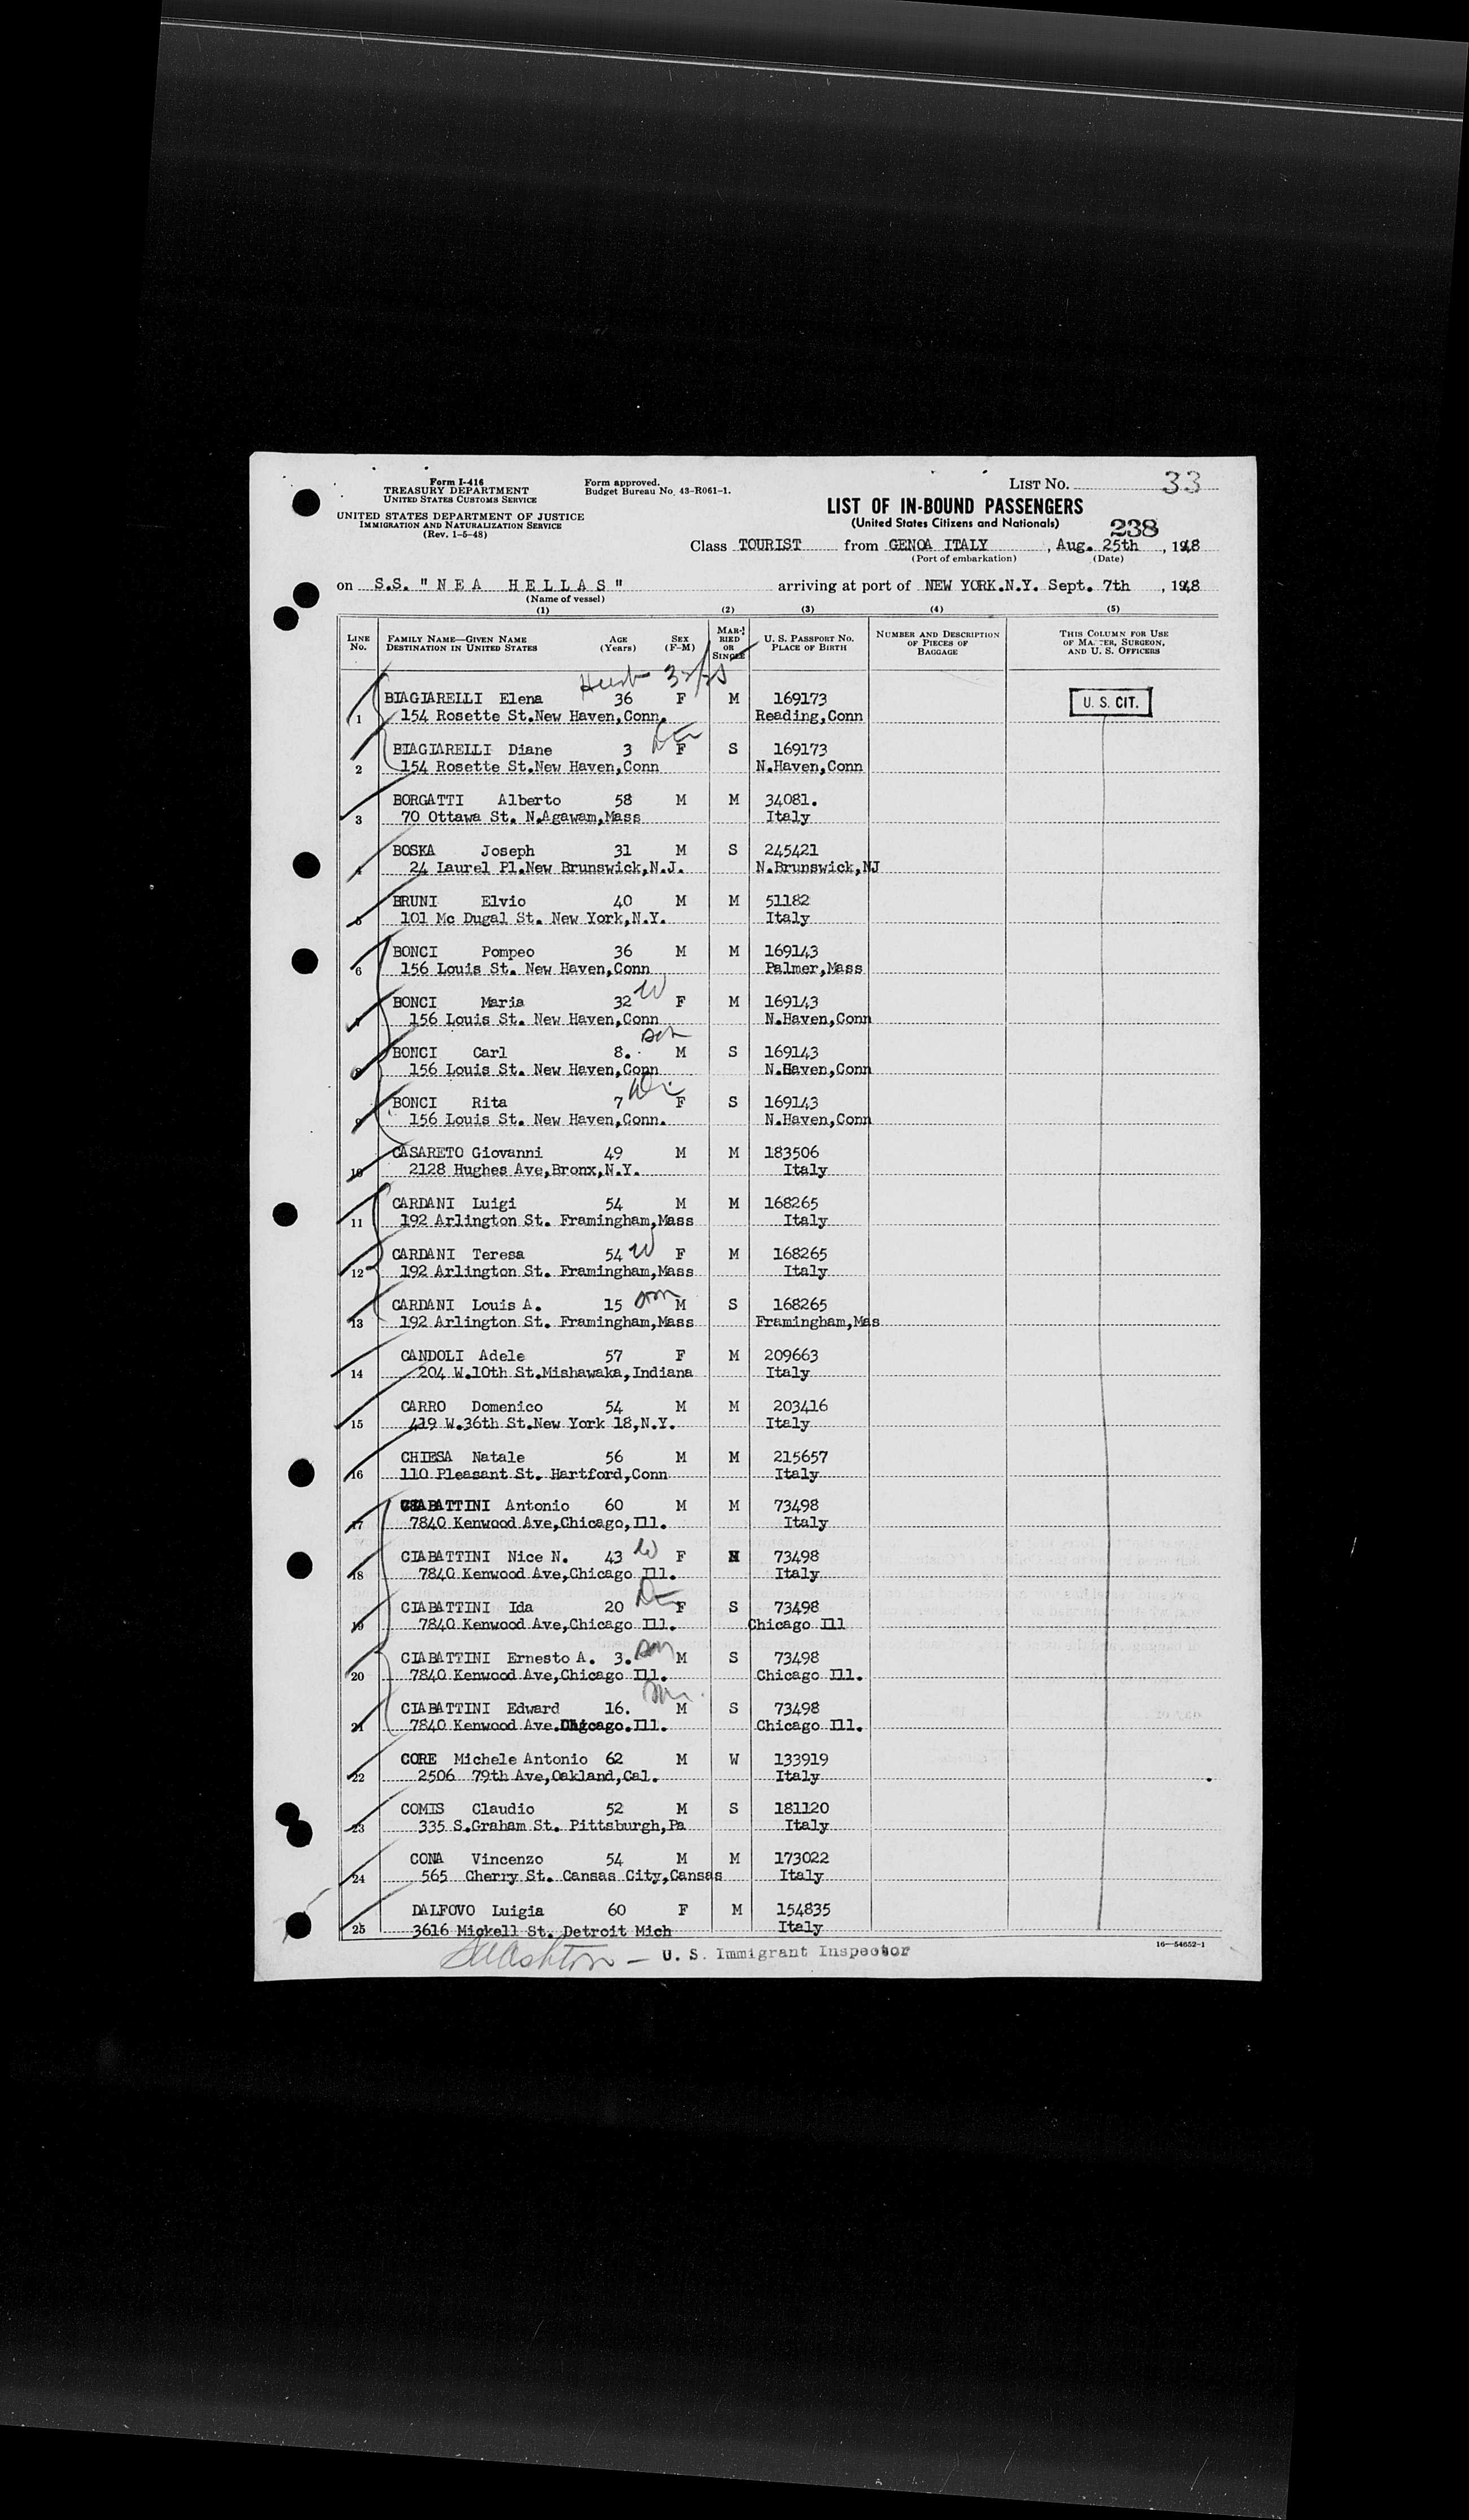 Form I-416
TREASURY DEPARTMENT
UNITED STATES CUSTOMS SERVICE
UNITED STATES DEPARTMENT OF JUSTICE
IMMIGRATION AND NATURALIZATION SERVICE
(Rev. 1-5-48)
Form approved.
Budget Bureau No. 43-R061-1.
LIST NO. 33
LIST OF IN-BOUND PASSENGERS
(United States Citizens and Nationals)
238
Class TOURIST from GENOA ITALY, Aug. 25th, 1948
(Port of embarkation) (Date)
on S.S. "NEA HELLAS" arriving at port of NEW YORK.N.Y. Sept. 7th, 1948
(Name of vessel)
(1) (2) (3) (4) (5)
LINE NO. FAMILY NAME—GIVEN NAME DESTINATION IN UNITED STATES AGE (Years) SEX (F-M) MARRIED OR SINGLE U. S. PASSPORT NO. PLACE OF BIRTH NUMBER AND DESCRIPTION OF PIECES OF BAGGAGE THIS COLUMN FOR USE OF MASTER, SURGEON, AND U. S. OFFICERS
Husb
BIAGIARELLI Elena 36 F M 169173 U. S. CIT.
1 154 Rosette St.New Haven,Conn. Reading,Conn
BIAGIARELLI Diane 3 F S 169173
2 154 Rosette St.New Haven,Conn N.Haven,Conn
BORGATTI Alberto 58 M M 34081.
3 70 Ottawa St. N.Agawam,Mass Italy
BOSKA Joseph 31 M S 245421
4 24 Laurel Pl.New Brunswick,N.J. N.Brunswick,NJ
BRUNI Elvio 40 M M 51182
5 101 Mc Dugal St. New York,N.Y. Italy
BONCI Pompeo 36 M M 169143
6 156 Louis St. New Haven,Conn Palmer,Mass
BONCI Maria 32 W F M 169143
7 156 Louis St. New Haven,Conn N.Haven,Conn
BONCI Carl 8. son M S 169143
8 156 Louis St. New Haven,Conn N.Haven,Conn
BONCI Rita 7 F S 169143
9 156 Louis St. New Haven,Conn. N.Haven,Conn
CASARETO Giovanni 49 M M 183506
10 2128 Hughes Ave,Bronx,N.Y. Italy
CARDANI Luigi 54 M M 168265
11 192 Arlington St. Framingham,Mass Italy
CARDANI Teresa 54 W F M 168265
12 192 Arlington St. Framingham,Mass Italy
CARDANI Louis A. 15 son M S 168265
13 192 Arlington St. Framingham,Mass Framingham,Mas
CANDOLI Adele 57 F M 209663
14 204 W.10th St.Mishawaka,Indiana Italy
CARRO Domenico 54 M M 203416
15 419 W.36th St.New York 18,N.Y. Italy
CHIESA Natale 56 M M 215657
16 110 Pleasant St. Hartford,Conn Italy
CIABATTINI Antonio 60 M M 73498
17 7840 Kenwood Ave,Chicago,Ill. Italy
CIABATTINI Nice N. 43 W F M 73498
18 7840 Kenwood Ave,Chicago Ill. Italy
CIABATTINI Ida 20 F S 73498
19 7840 Kenwood Ave,Chicago Ill. Chicago Ill
CIABATTINI Ernesto A. 3. son M S 73498
20 7840 Kenwood Ave,Chicago Ill. Chicago Ill.
CIABATTINI Edward 16. son M S 73498
21 7840 Kenwood Ave.Chicago.Ill. Chicago Ill.
CORE Michele Antonio 62 M W 133919
22 2506 79th Ave,Oakland,Cal. Italy
COMIS Claudio 52 M S 181120
23 335 S.Graham St. Pittsburgh,Pa Italy
CONA Vincenzo 54 M M 173022
24 565 Cherry St. Cansas City,Cansas Italy
DALFOVO Luigia 60 F M 154835
25 3616 Mickell St. Detroit Mich Italy
U. S. Immigrant Inspector
16—54652-1